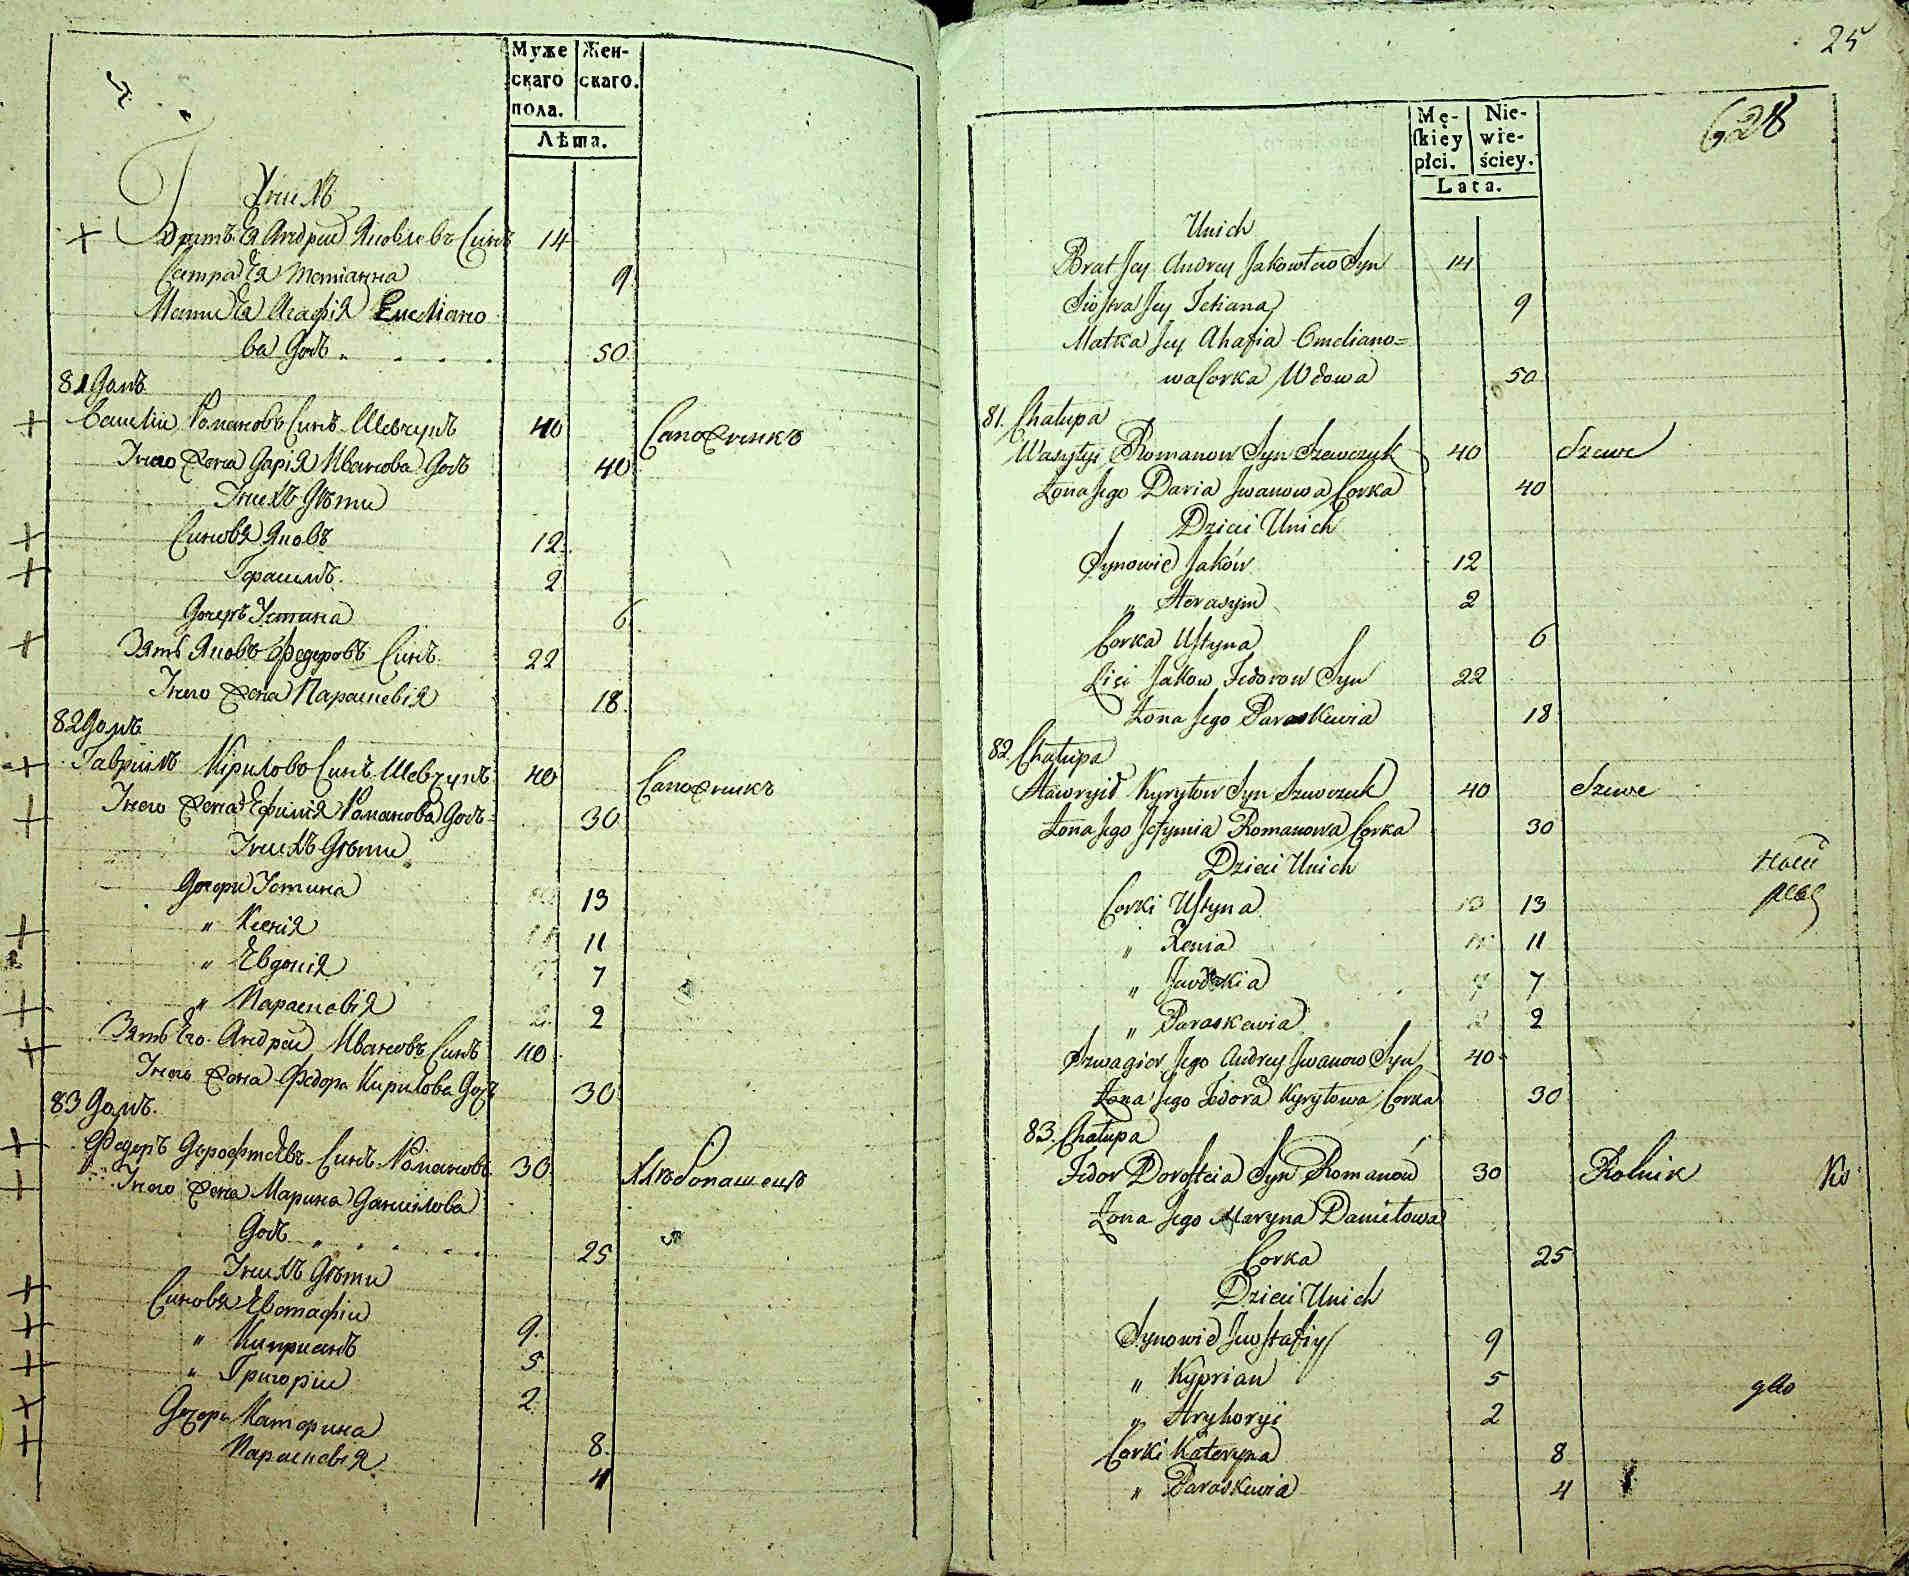 Муже Жен-
скаго скаго.
пола.
Лѣта.
Унихъ
Братъ Ея Андрей Яковлевъ Синъ 14
Сестра Ея Татіанна 9
Мати Ея Агафія Емеліано
ва Дочь 50
81 Домъ
Василій Романовъ Синъ Шевчукъ 40 Сапожникъ
Унего Жена Дарія Иванова Дочь 40
Унихъ Дѣти
Синовя Яковъ 12
Герасимъ 2
Дочерь Устина 6
Зять Яковъ Федоровъ Синъ 22
Унего Жена Параскевія 18
82 Домъ
Гавріилъ Кириловъ Синъ Шевчукъ 40 Сапожникъ
Унего Жена Ефимія Романова Дочь 30
Унихъ Дѣти
Дочери Устина 13
" Ксенія 11
" Евдокія 7
" Параскевія 2
Зять Его Андрей Ивановъ Синъ 40
Унего Жена Федора Кирилова Дочь 30
83 Домъ
Федоръ Дорофтѣевъ Синъ Романовъ 30 Хлѣбопашецъ
Унего Жена Марина Даниилова
Дочь 25
Унихъ Дѣти
Синовя Евстафій 9
" Киприанъ 5
" Григорій 2
Дочери Катерина 8
Параскевія 4
25
628
Mę- Nie-
skiey wie-
płci. ściey.
Lata.
Unich
Brat Jey Andrey Jakowlew Syn 14
Siostra Jey Tetiana 9
Matka Jey Ahafia Omeliano=
wa Corka Wdowa 50
81. Chałupa
Wasylyi Romanow Syn Szewczuk 40 Szewc
Żona Jego Daria Jwanowa Corka 40
Dzieci Unich
Synowie Jaków 12
" Herasym 2
Corka Ustyna 6
Zięć Jakow Fedorow Syn 22
Żona Jego Paraskewia 18
82. Chałupa
Hawryid Kyryłow Syn Szewczuk 40 Szewc
Żona Jego Jefymia Romanowa Corka 30
Dzieci Unich
Corki Ustyna 13 13
" Xenia 11
" Jawdokia 7 7
" Paraskewia 2 2
Szwagier Jego Andrey Jwanow Syn 40
Żona Jego Fedora Kyryłowa Corka 30
83. Chałupa
Fedor Dorofteia Syn Romanów 30 Rolnik
Żona Jego Maryna Daniełowa
Corka 25
Dzieci Unich
Synowie Jewstafiy 9
" Kyprian 5
" Hryhoryi 2
Corki Kateryna 8
" Paraskewia 4